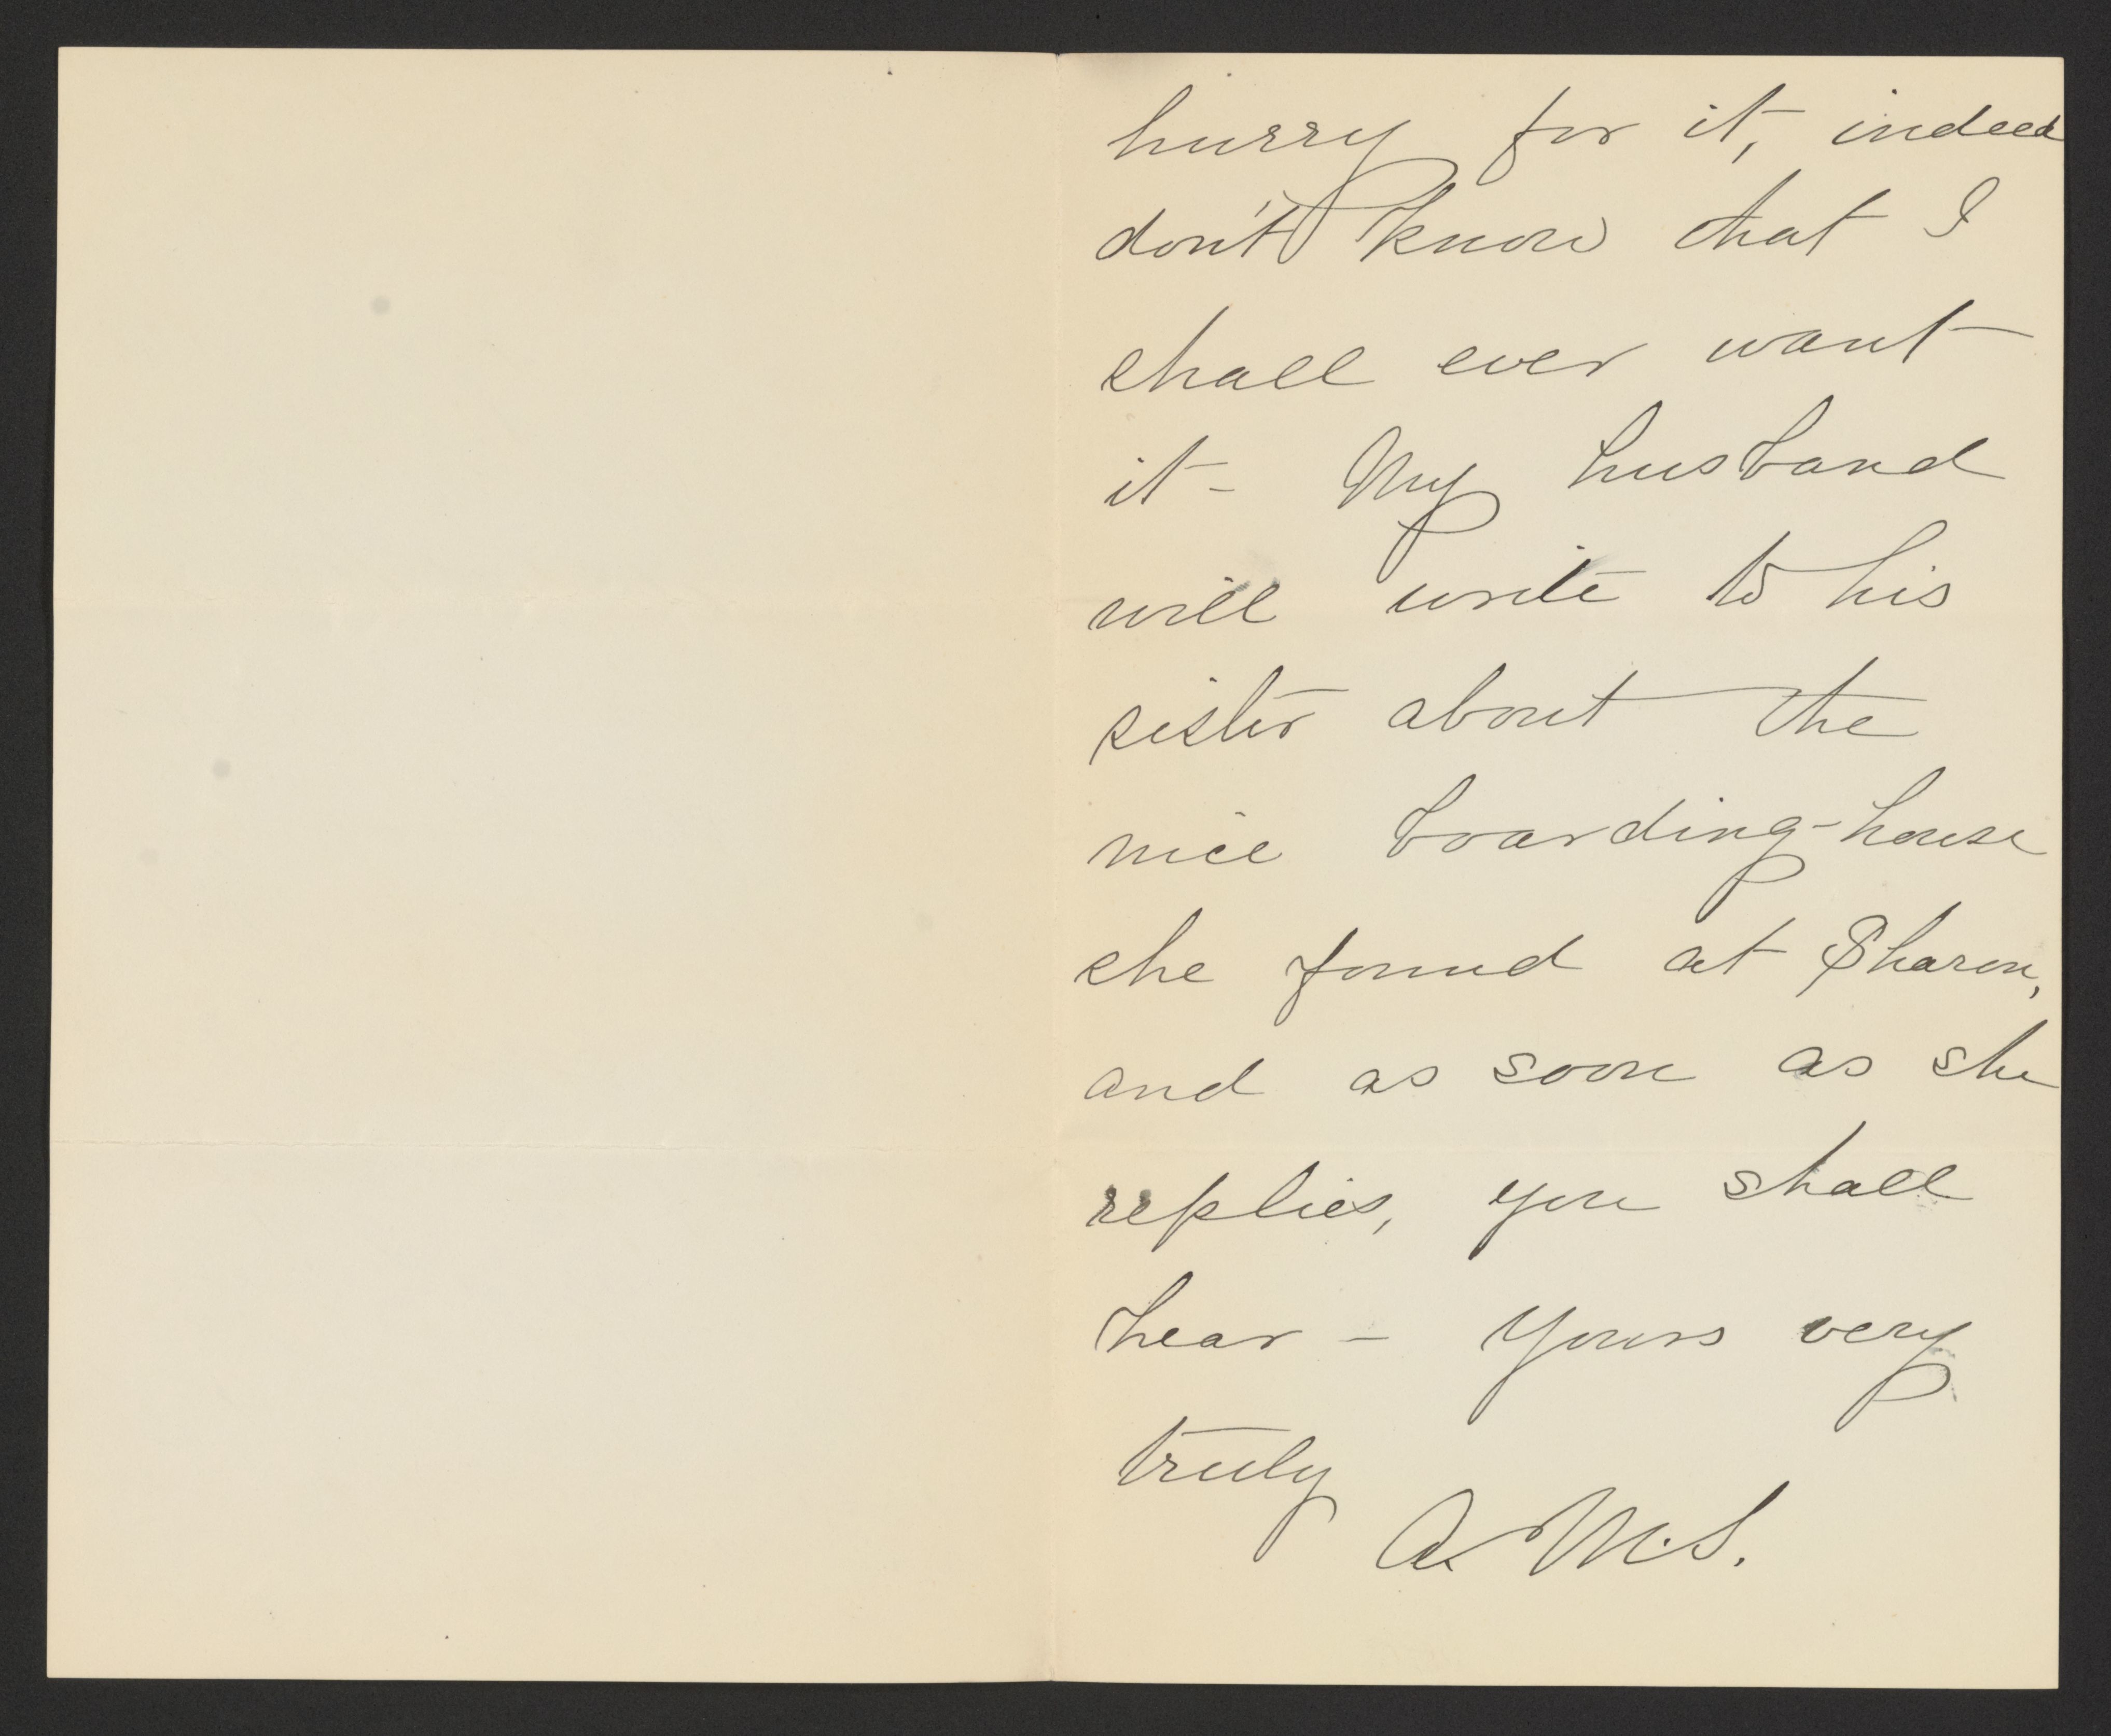 hurry for it, indeed
don't know that I
shall ever want
it - My husband
will write to his
sister about the
nice boarding-house
she found at Sharon,
and as soon as she
replies, you shall
hear - Yours very
truly
A. M. S.